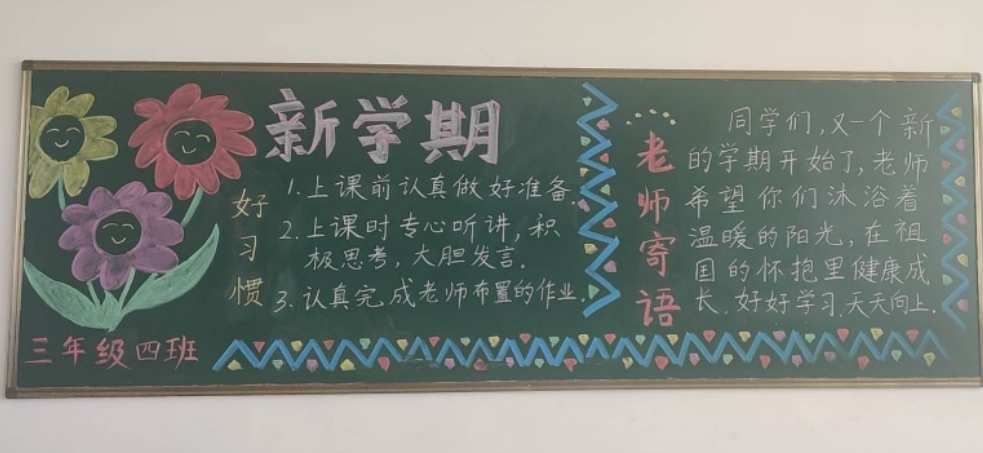 新学期
好习惯
1.上课前认真做好准备.
2.上课时专心听讲,积
极思考,大胆发言.
3.认真完成老师布置的作业.
三年级四班
老师寄语
同学们,又一个新
的学期开始了,老师
希望你们沐浴着
温暖的阳光,在祖
国的怀抱里健康成
长.好好学习.天天向上.